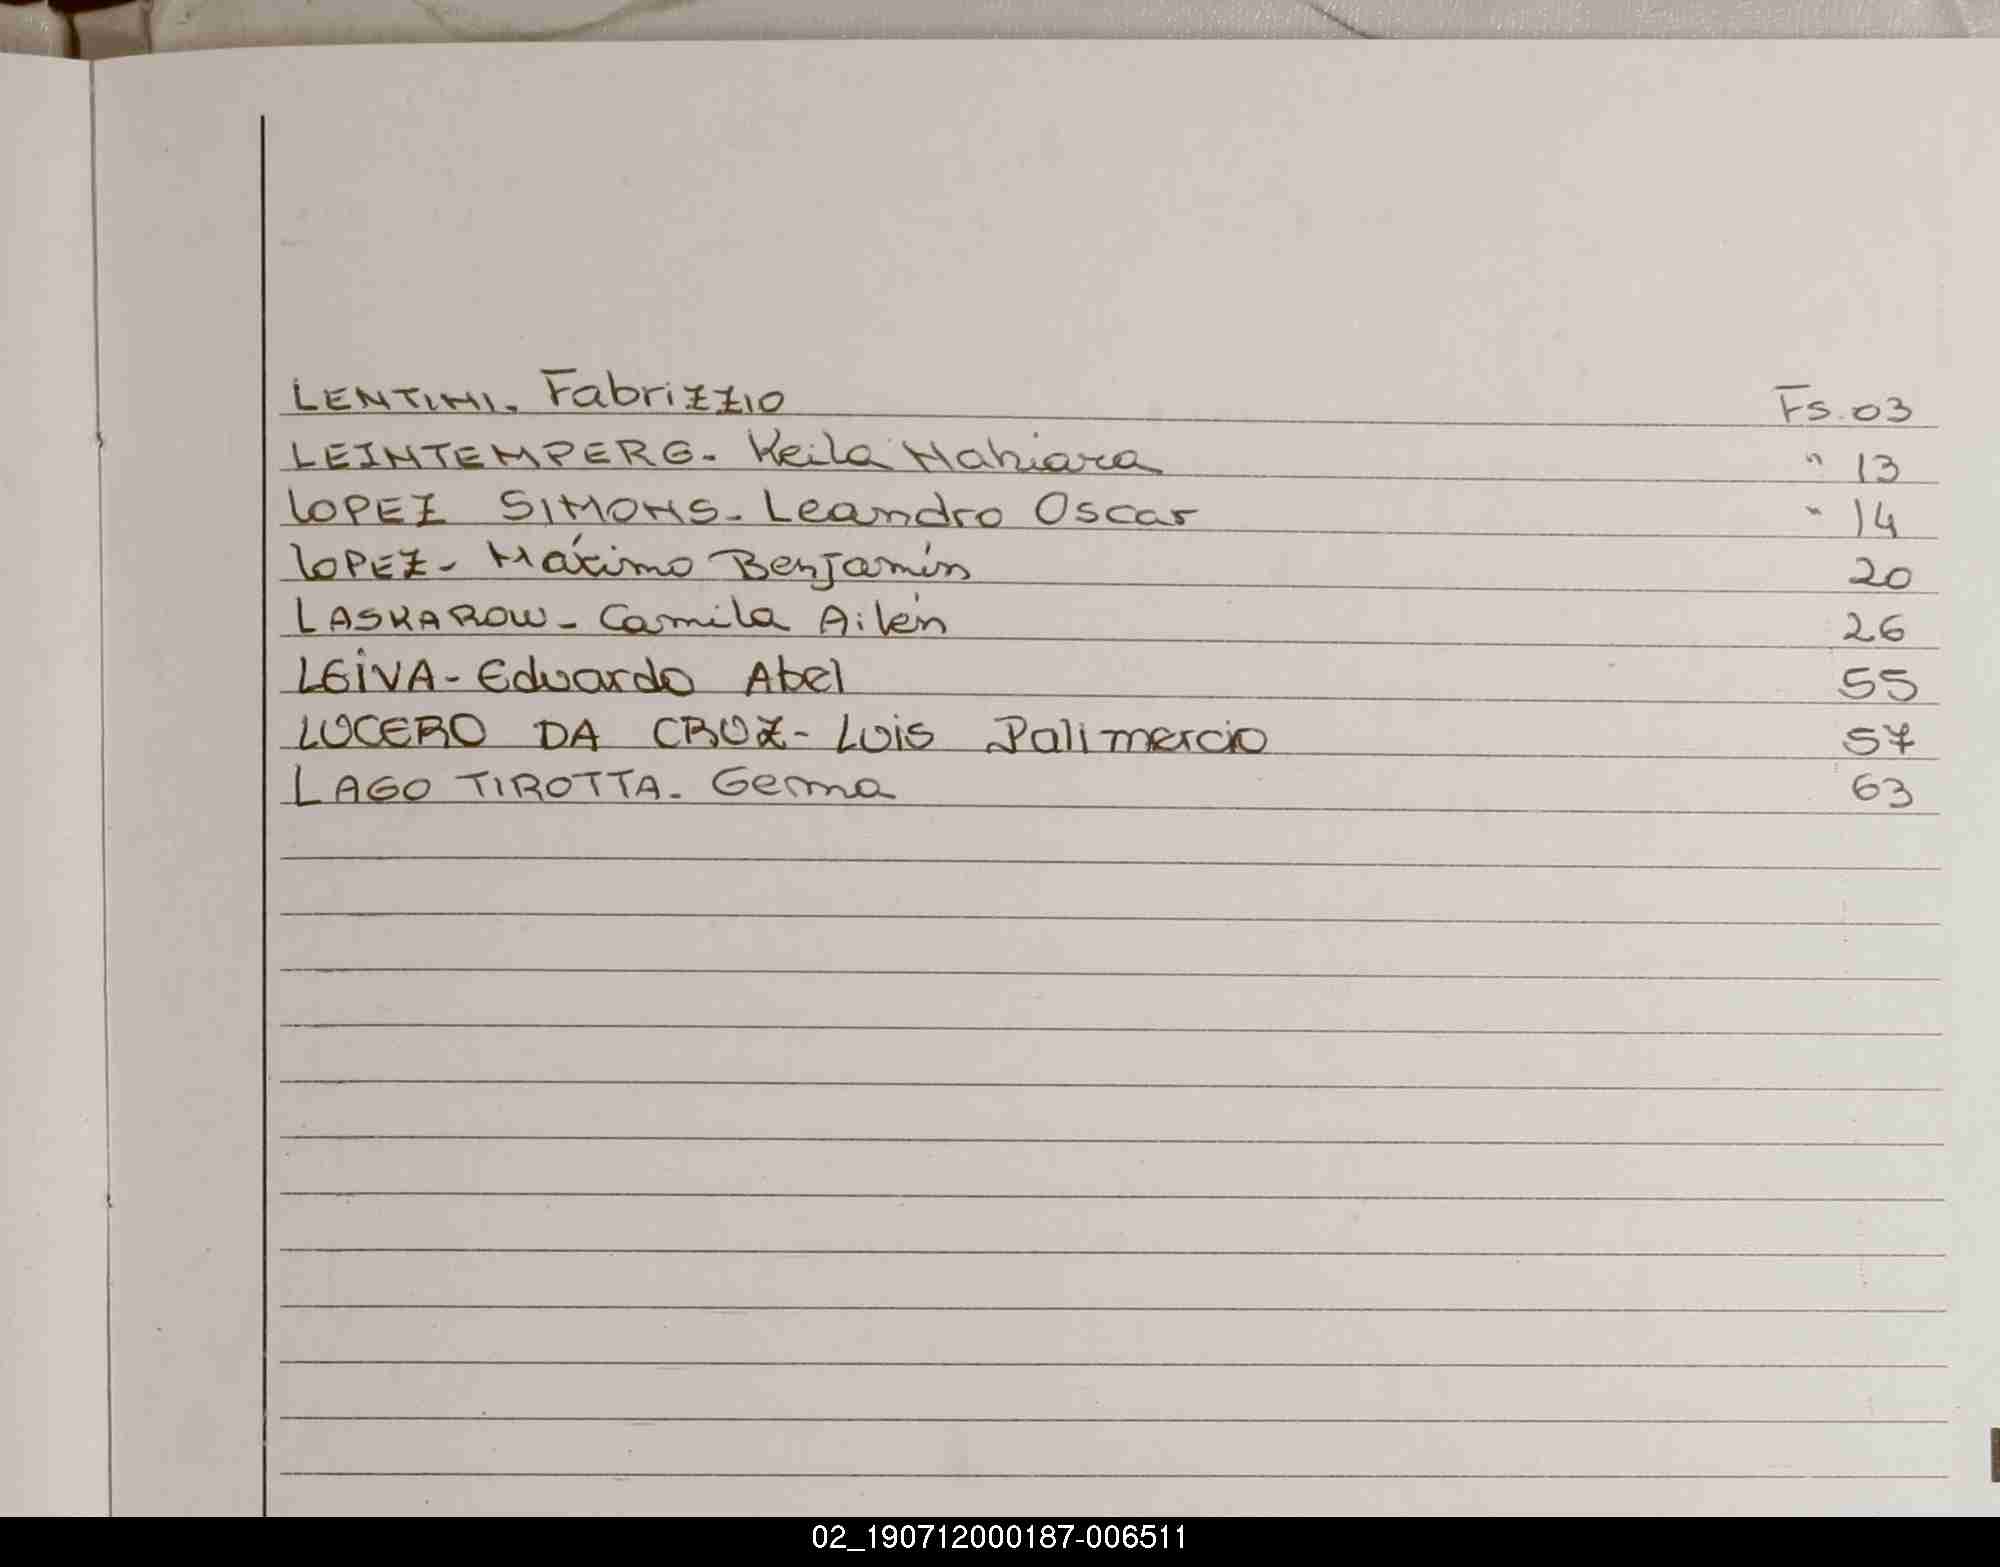 LENTINI. Fabrizzio Fs. 03
LEINTEMPERG. Keila Nahiara " 13
LOPEZ SIMONS. Leandro Oscar " 14
LOPEZ- Máximo Benjamín 20
LASKAROW- Camila Ailén 26
LEIVA- Eduardo Abel 55
LUCERO DA CRUZ- Luis Palimercio 57
LAGO TIROTTA. Gemma 63
02_190712000187-006511